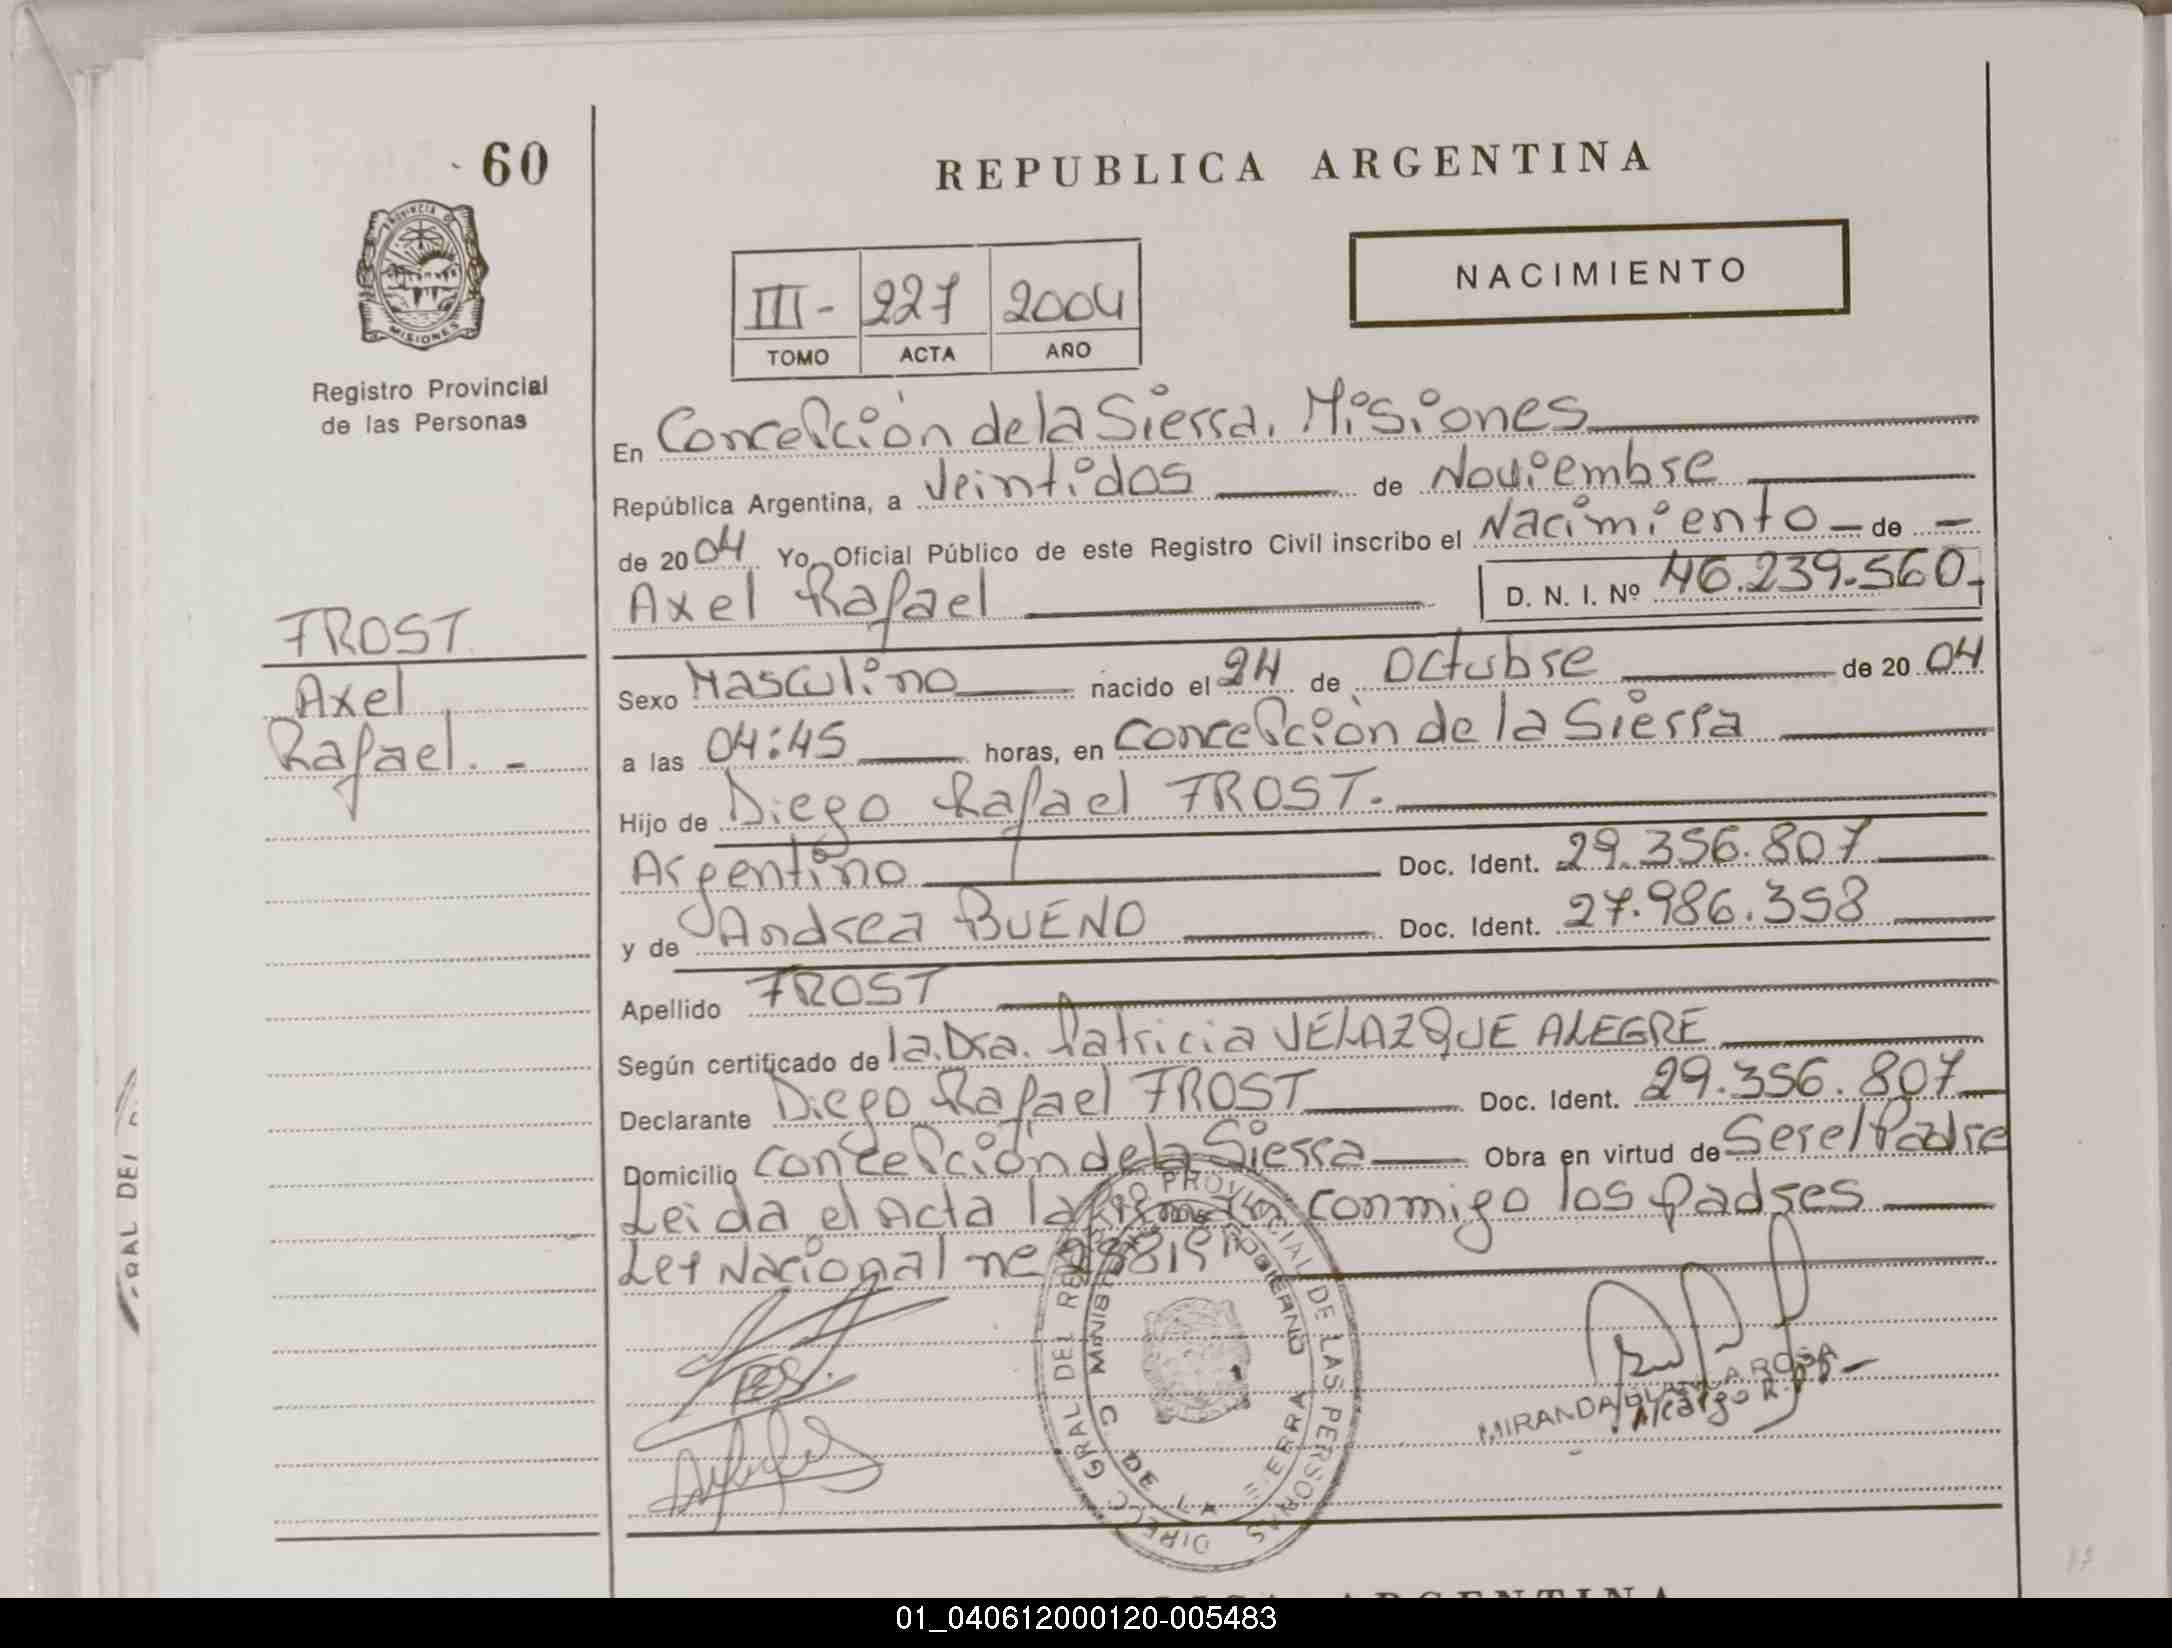 60
REPUBLICA ARGENTINA
PROVINCIA DE
MISIONES
Registro Provincial
de las Personas
III- 227 2004
TOMO ACTA AÑO
NACIMIENTO
En Concepción de la Sierra. Misiones
República Argentina, a Veintidos de Noviembre
de 2004 Yo, Oficial Público de este Registro Civil inscribo el Nacimiento - de -
Axel Rafael D. N. I. Nº 46.239.560-
FROST
Axel
Rafael. -
Sexo Masculino nacido el 24 de Octubre de 2004
a las 04:45 horas, en Concepción de la Sierra
Hijo de Diego Rafael FROST.
Argentino Doc. Ident. 29.356.807
y de Andrea BUENO Doc. Ident. 27.986.358
Apellido FROST
Según certificado de la Dra. Patricia VELAZQUE ALEGRE
Declarante Diego Rafael FROST Doc. Ident. 29.356.807
Domicilio Concepción de la Sierra Obra en virtud de Ser el Padre
Leida el Acta la firman conmigo los Padres
Ley Nacional nº
DIRECC. GRAL DEL REGISTRO PROVINCIAL DE LAS PERSONAS
GOBIERNO
MIRANDA BLANCA ROSA
A/cargo R.PP-
RAL DEL
REPUBLICA ARGENTINA
01_040612000120-005483